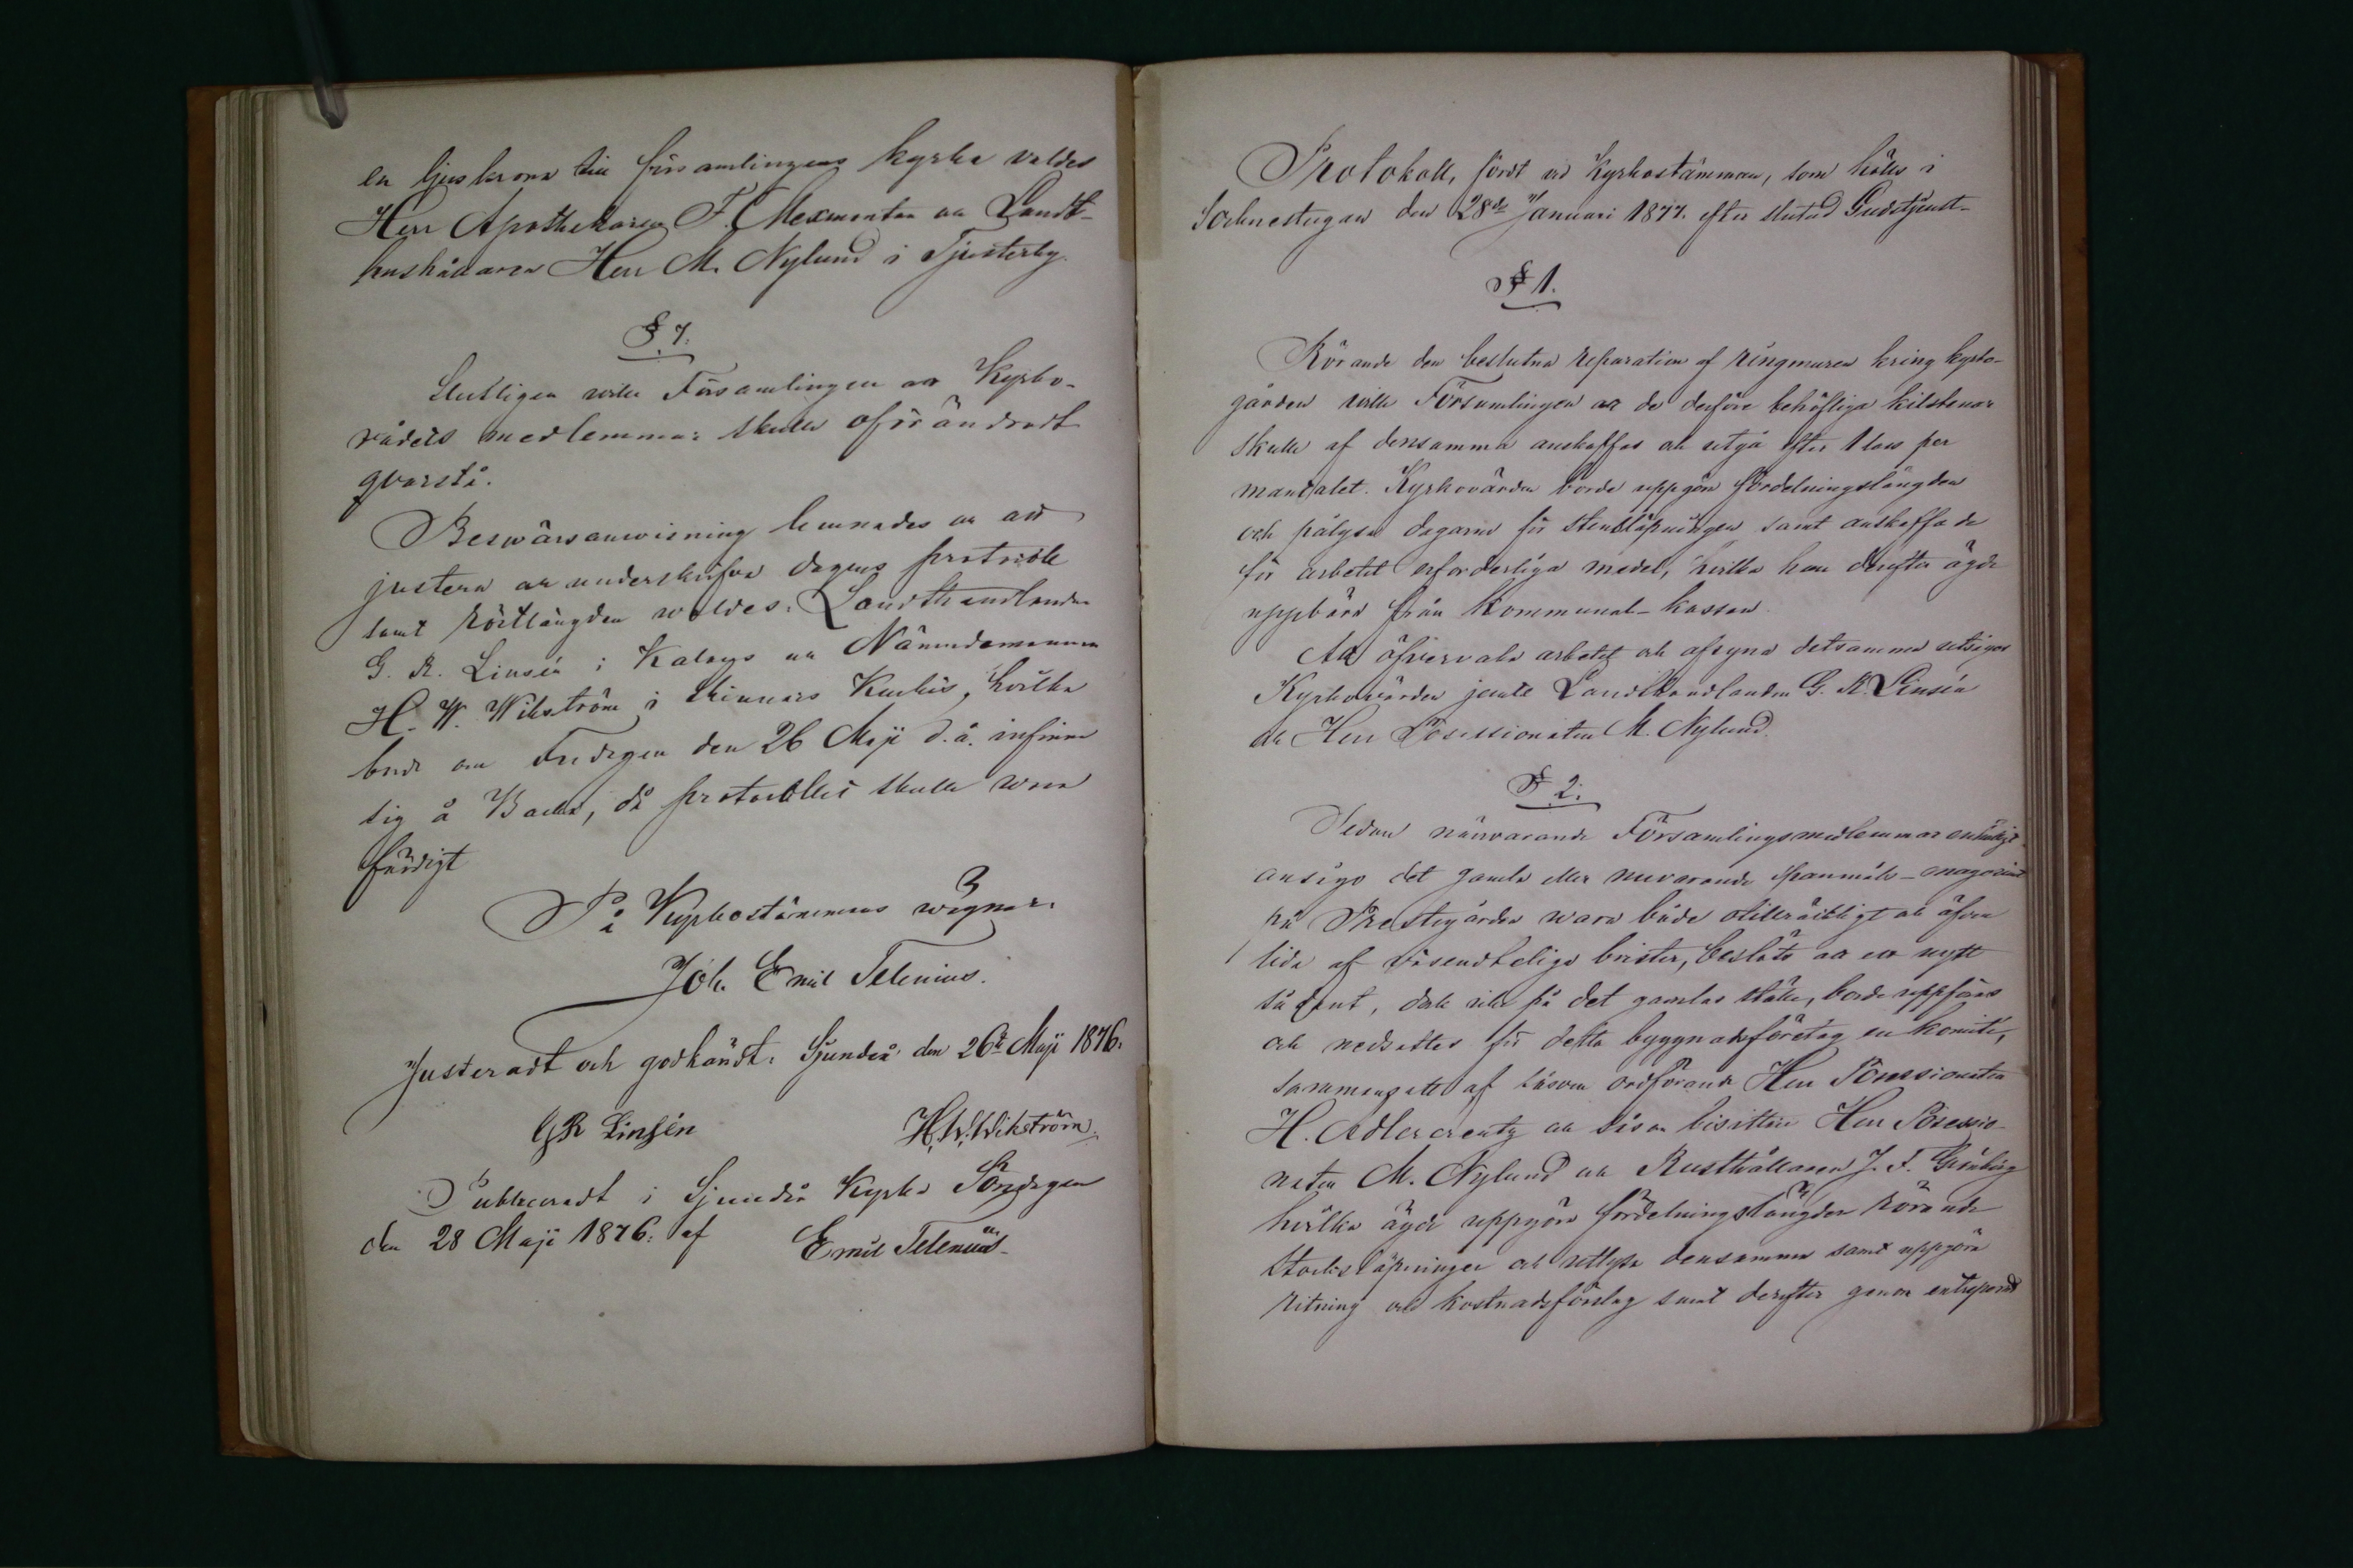 en ljuskrona till församlingens kyrka valdes
Herr Apothekaren F. Mexmontan och Landt-
hushållaren Herr M. Nylund i Tjusterby.
§ 7.
Slutligen ville Församlingen att Kyrko-
rådets medlemmar skulle oförändradt
qvarstå.
Beswärsanwisning lemnades och att
justera och underskrifva dagens protocoll
samt röstlängden waldes: Landthandlanden
G. R. Linsén i Kalans och Nämndemannen
H. W. Wikström i Skinnars Kurkis, hvilka
bude om Fredagen den 26 Maji d. å. infinna
sig å Backa, då protocollet skulle wara
färdigt
På Kyrkostämmans wägnar:
Joh. Emil Telenius.
Justeradt och godkändt. Sjundeå den 26te Maji 1876.
G R Linsén H. W. Wikström.
Publiceradt i Sjundeå Kyrka Söndagen
den 28 Maji 1876. af Emil Telenius
Protokoll, fördt vid Kyrkostämman, som hölls i
Sockenstugan den 28de Januari 1877. efter slutad Gudstjenst-
§ 1.
Rörande den beslutna reparation af ringmuren kring kyrko-
gården ville Församlingen att de derföre behöfliga kilstenar
skulle af densamma anskaffas och utgå efter 1 lass per
mantalet. Kyrkovärden borde uppgöra fördelningslängden
och pålysa dagarne för stensläpningen samt anskaffa de
för arbetet erforderliga medel, hvilka han derefter ägde
uppbära från Kommunal-kassan.
Att öfvervaka arbetet och afsyna detsamma utsågos
Kyrkovärden jemte Landthandlanden G. R. Linsén
och Herr Possessionaten M. Nylund.
§ 2.
Sedan närvarande Församlingsmedlemmar enhälligt
ansågo det gamla eller nuvarande Spanmåls-magasinet
på Prestegården wara både otillräckligt och äfven
lida af väsendteliga brister, beslöts att ett nytt
sådant, dock icke på det gamlas ställe, borde uppföras
och nedsattes för detta byggnadsföretag en komité,
sammansatt af såsom ordförande Herr Possessionaten
H. Adlercreutz och såsom bisittare Herr Possessio-
naten M. Nylund och Rusthållaren J. F. Grönberg
hvilka ägde uppgöra fördelningslängden rörande
stocksläpningen och utlysa densamma samt uppgöra
ritning och kostnadsförslag samt derefter genom entreprenad